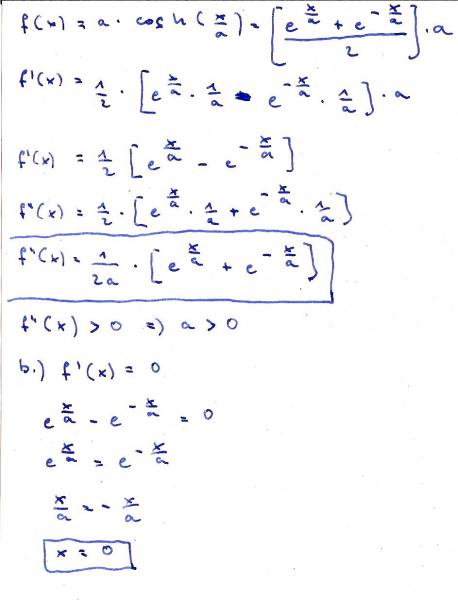 f(x) = a · cosh(x/a) = [(e^(x/a) + e^(-x/a))/2] · a
f'(x) = 1/2 · [e^(x/a) · 1/a - e^(-x/a) · 1/a] · a
f'(x) = 1/2 [e^(x/a) - e^(-x/a)]
f''(x) = 1/2 · [e^(x/a) · 1/a + e^(-x/a) · 1/a]
f''(x) = 1/(2a) · [e^(x/a) + e^(-x/a)]
f''(x) > 0 => a > 0
b.) f'(x) = 0
e^(x/a) - e^(-x/a) = 0
e^(x/a) = e^(-x/a)
x/a = - x/a
x = 0